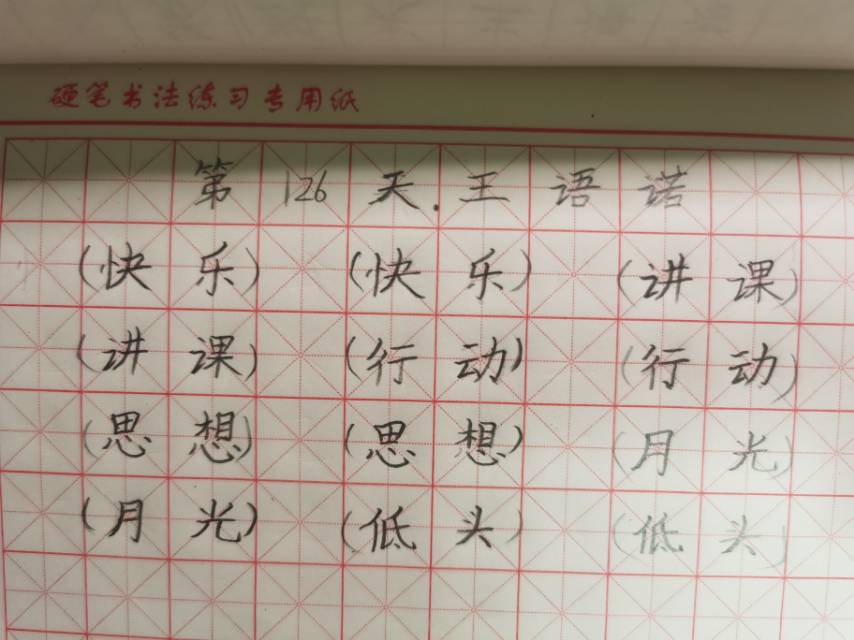 硬笔书法练习专用纸
第126天.王语诺
(快乐) (快乐) (讲课)
(讲课) (行动) (行动)
(思想) (思想) (月光)
(月光) (低头) (低头)